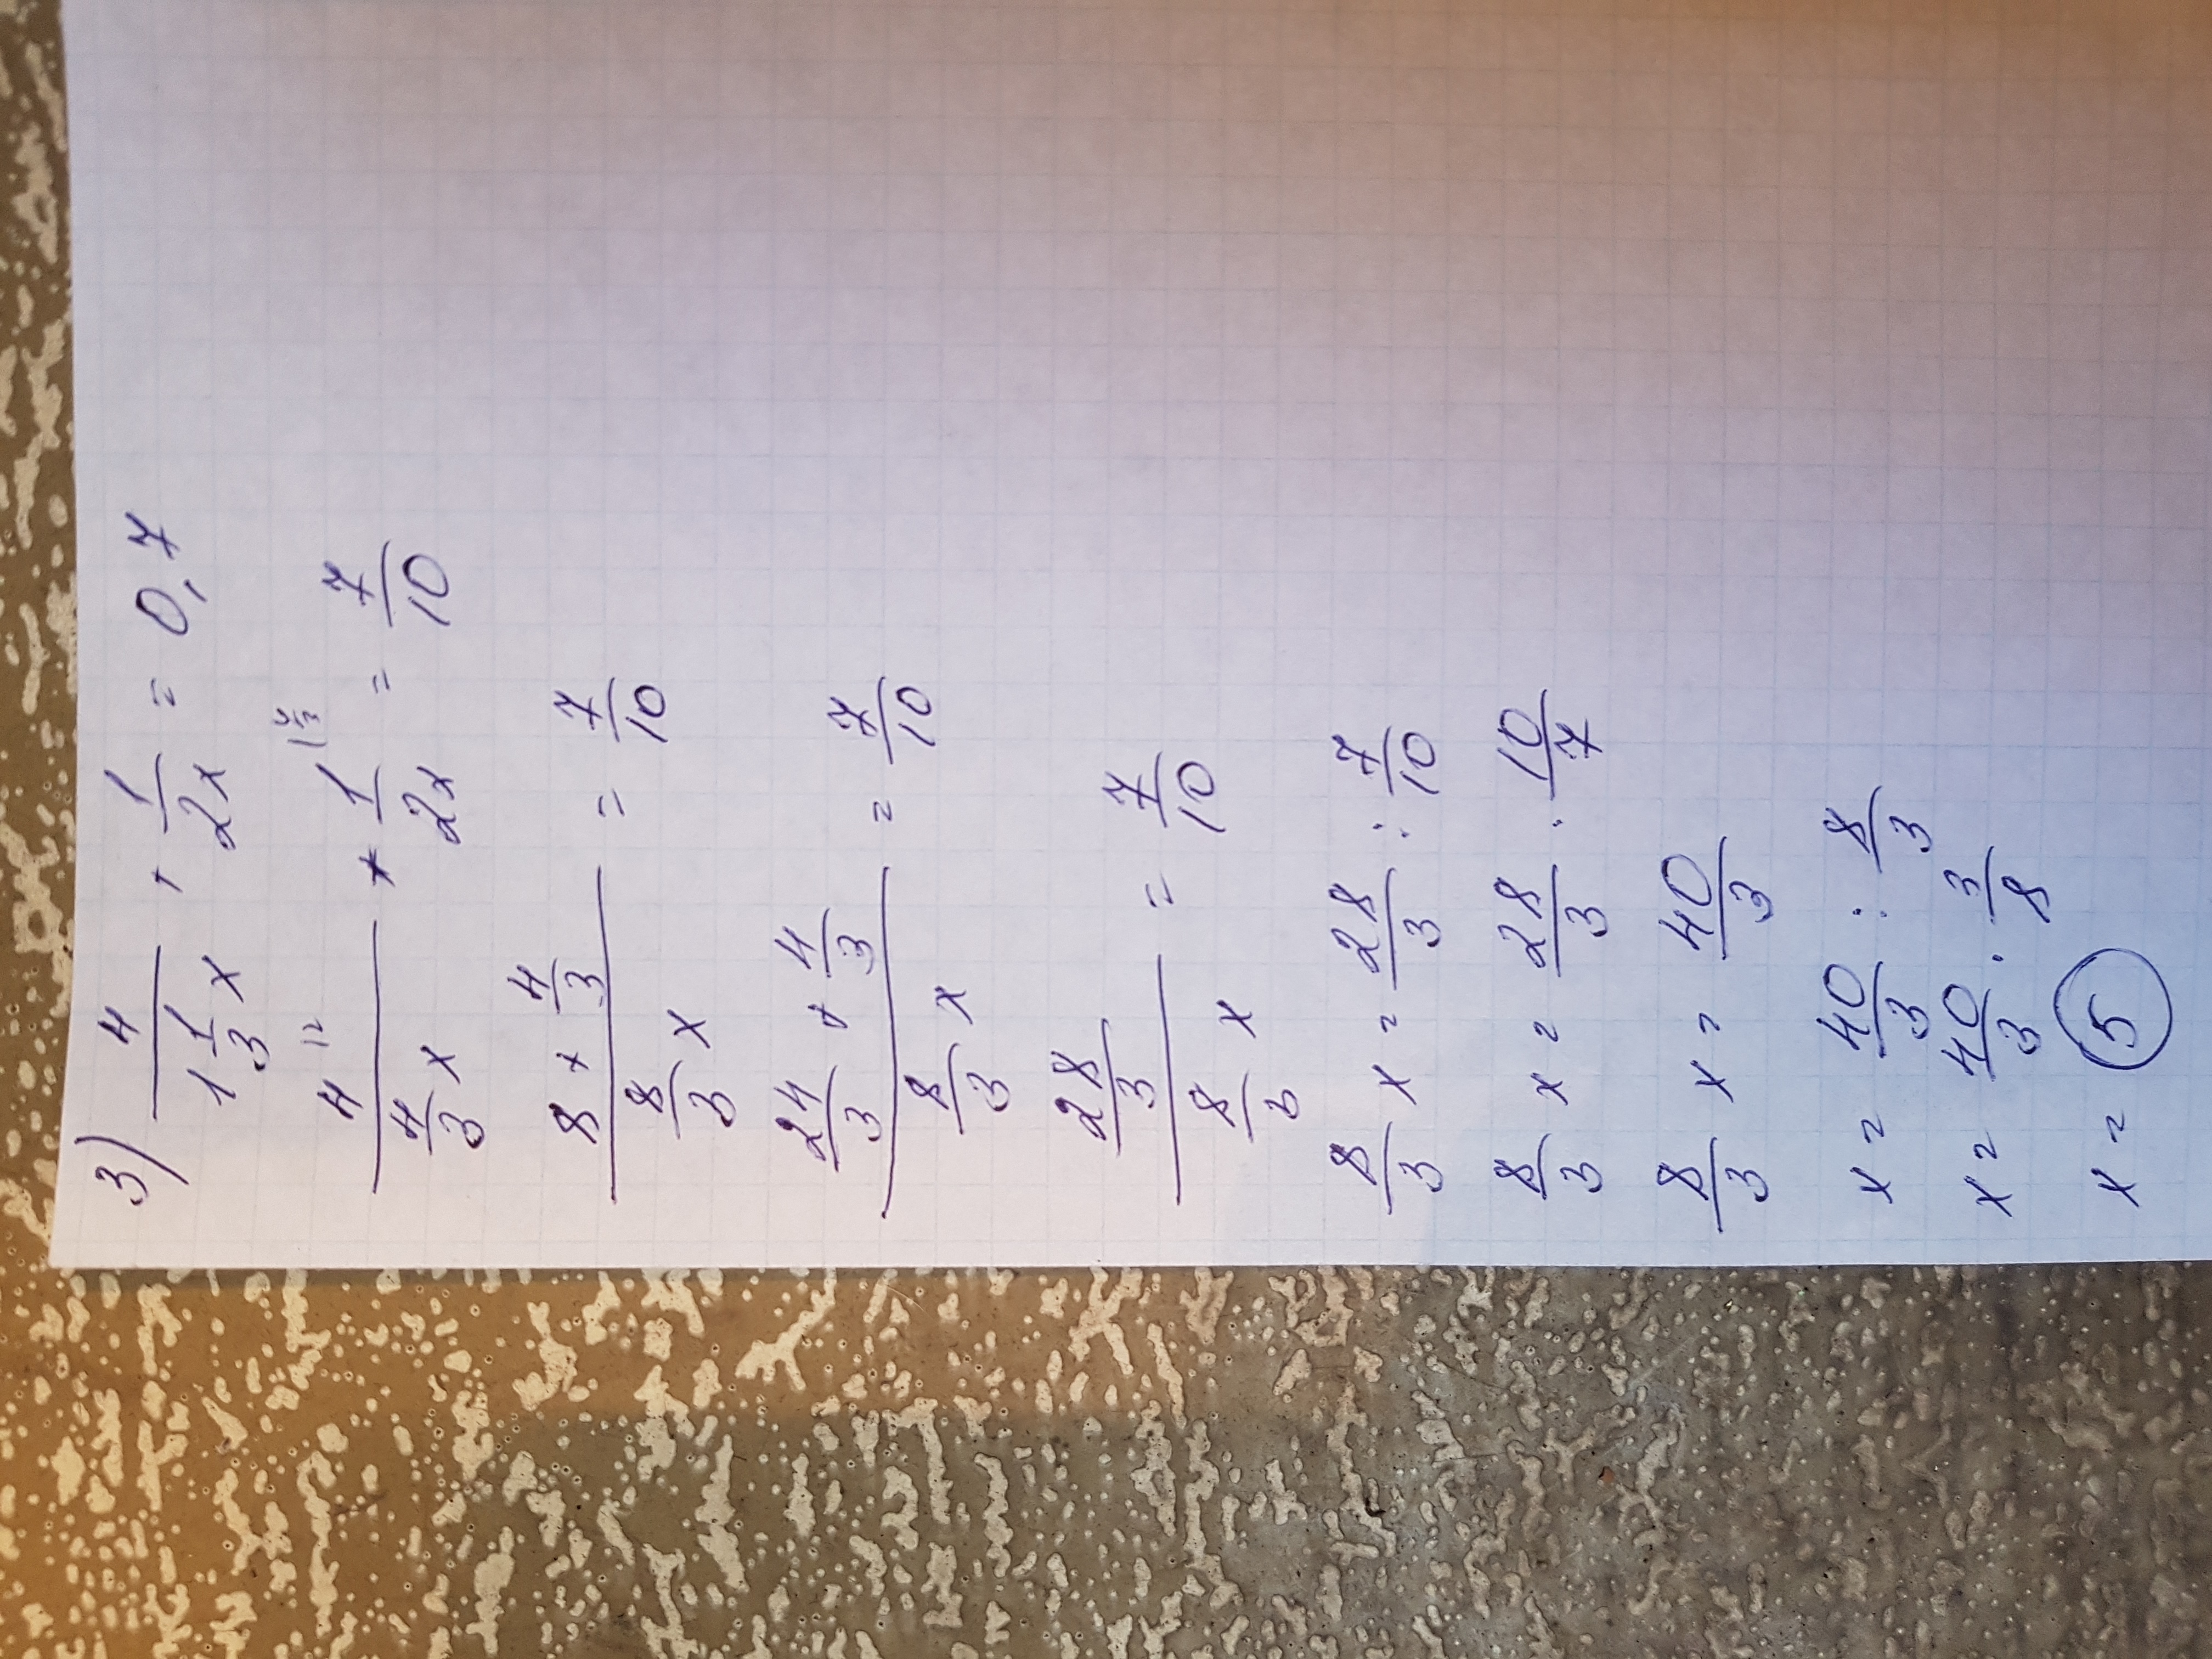 3) 4/(1 1/3 x) + 1/(2x) = 0,7
4^(2/)/(4/3 x) + 1^(4/3/)/(2x) = 7/10
(8 + 4/3)/(8/3 x) = 7/10
(24/3 + 4/3)/(8/3 x) = 7/10
(28/3)/(8/3 x) = 7/10
8/3 x = 28/3 : 7/10
8/3 x = 28/3 · 10/7
8/3 x = 40/3
x = 40/3 : 8/3
x = 40/3 · 3/8
x = 5